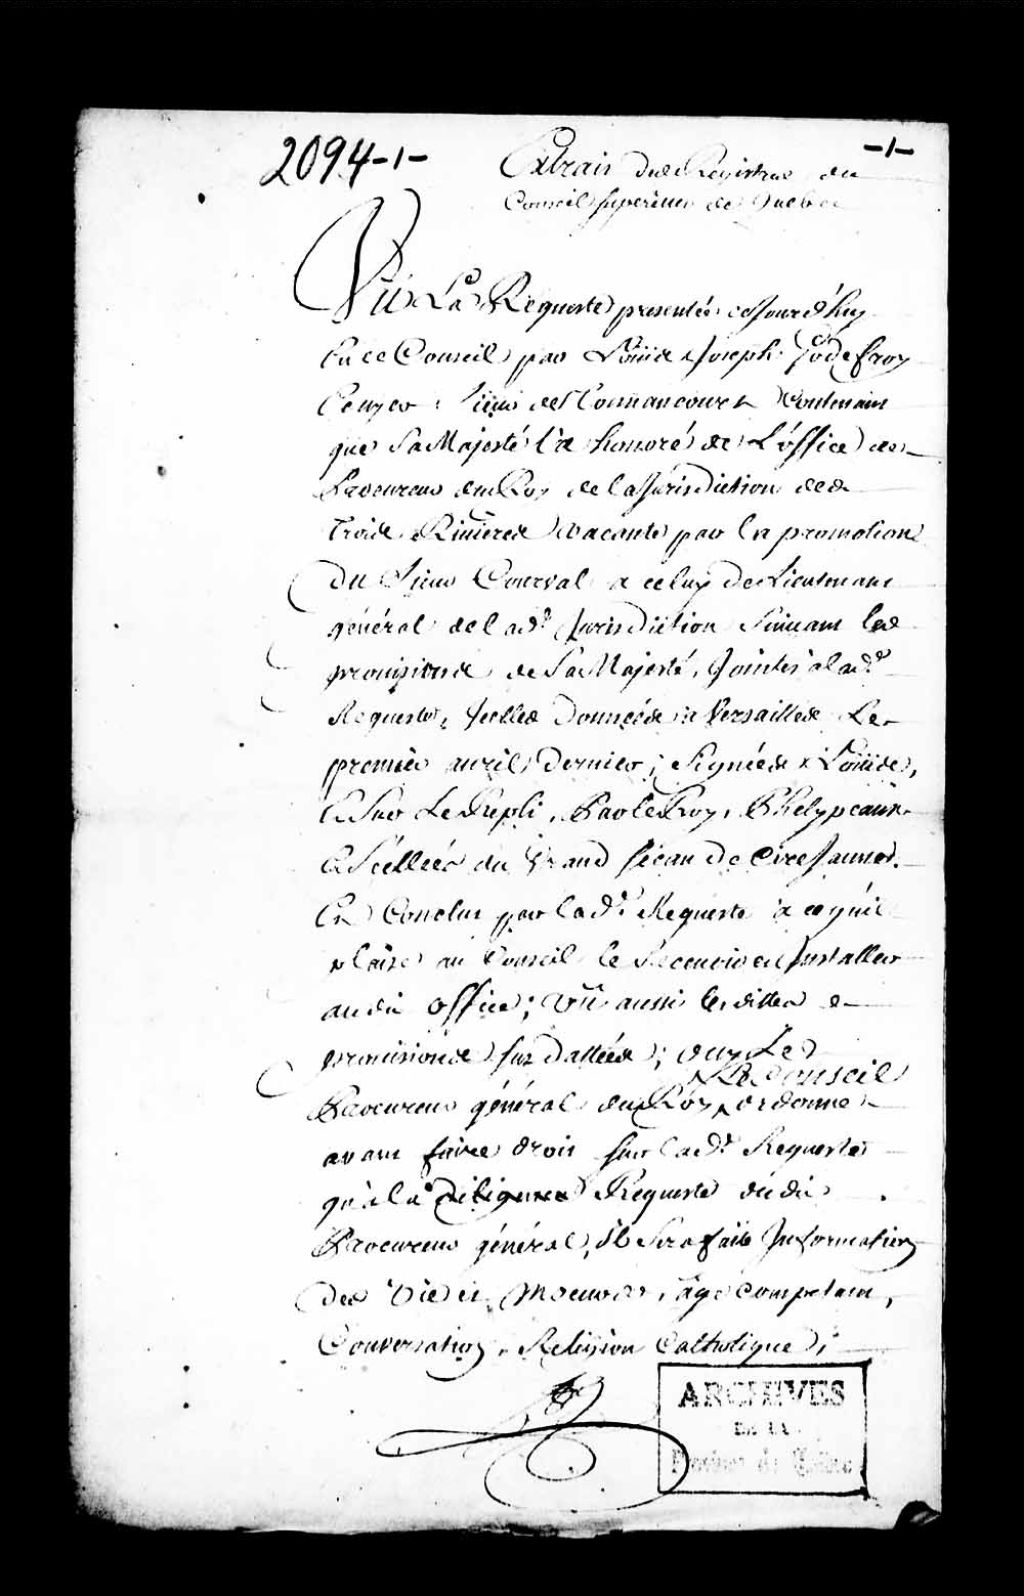 2094-1-
-1-
Extrait des Registres du
Conseil superieur de Quebec
Vû La Requeste presentée cejourd'huy
En ce Conseil par Loüis Joseph Godefroy
Ecuyer Sieur de Tonnancourt Contenant
que Sa Majesté l'a honoré de L'office de
Procureur du Roy de la Jurisdiction des
Trois Rivieres vacante par la promotion
Du Sieur Courval a celuy de Lieutenant
général de lad.e Jurisdiction Suivant les
provisions de Sa Majesté, Jointes a lad.e
Requeste, Icelles Données a Versailles Le
premier avril dernier; Signées Loüis,
Et Sur Le Repli, Par le Roy, Phelypeaux
Et Scellées du Grand sceau De Cire Jaune.
Et Conclut par lad.e Requeste a ce qu'il
plaise au Conseil le Recevoir et Installer
audit office; Vû aussi lesdittes
provisions sus dattées; ouy Le
Le Conseil
Procureur général du Roy, ordonne
avant faire droit sur lad.e Requeste
qu'a la diligence Requeste dudit
Procureur général, il Sera fait Information
des vie et moeurs, âge competant,
Conversation, Religion Catholique,
ARCHIVES
DE LA
Province de Québec